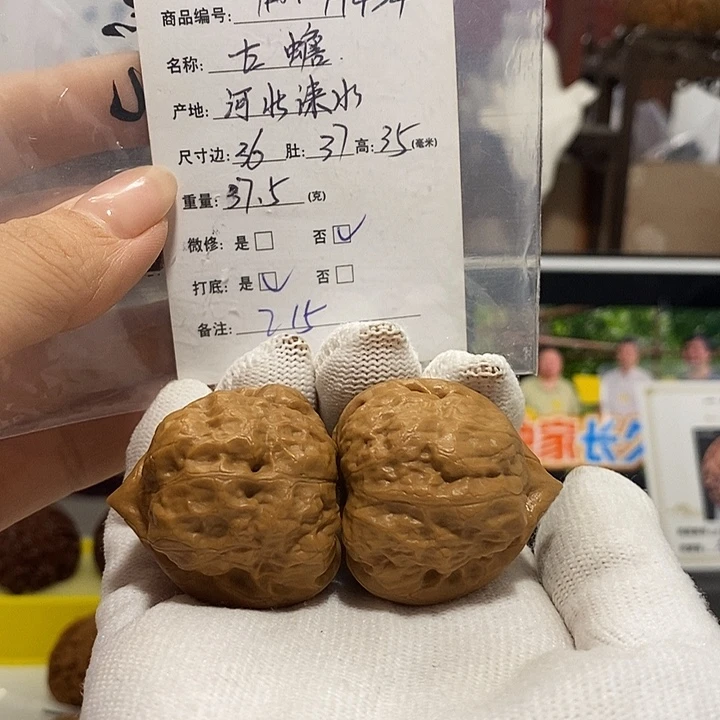 商品编号:
名称: 古蟾
产地: 河北涞水
尺寸边: 36 肚: 37 高: 35 (毫米)
重量: 37.5 (克)
微修: 是☐ 否☑
打底: 是☑ 否☐
备注: 215
家长